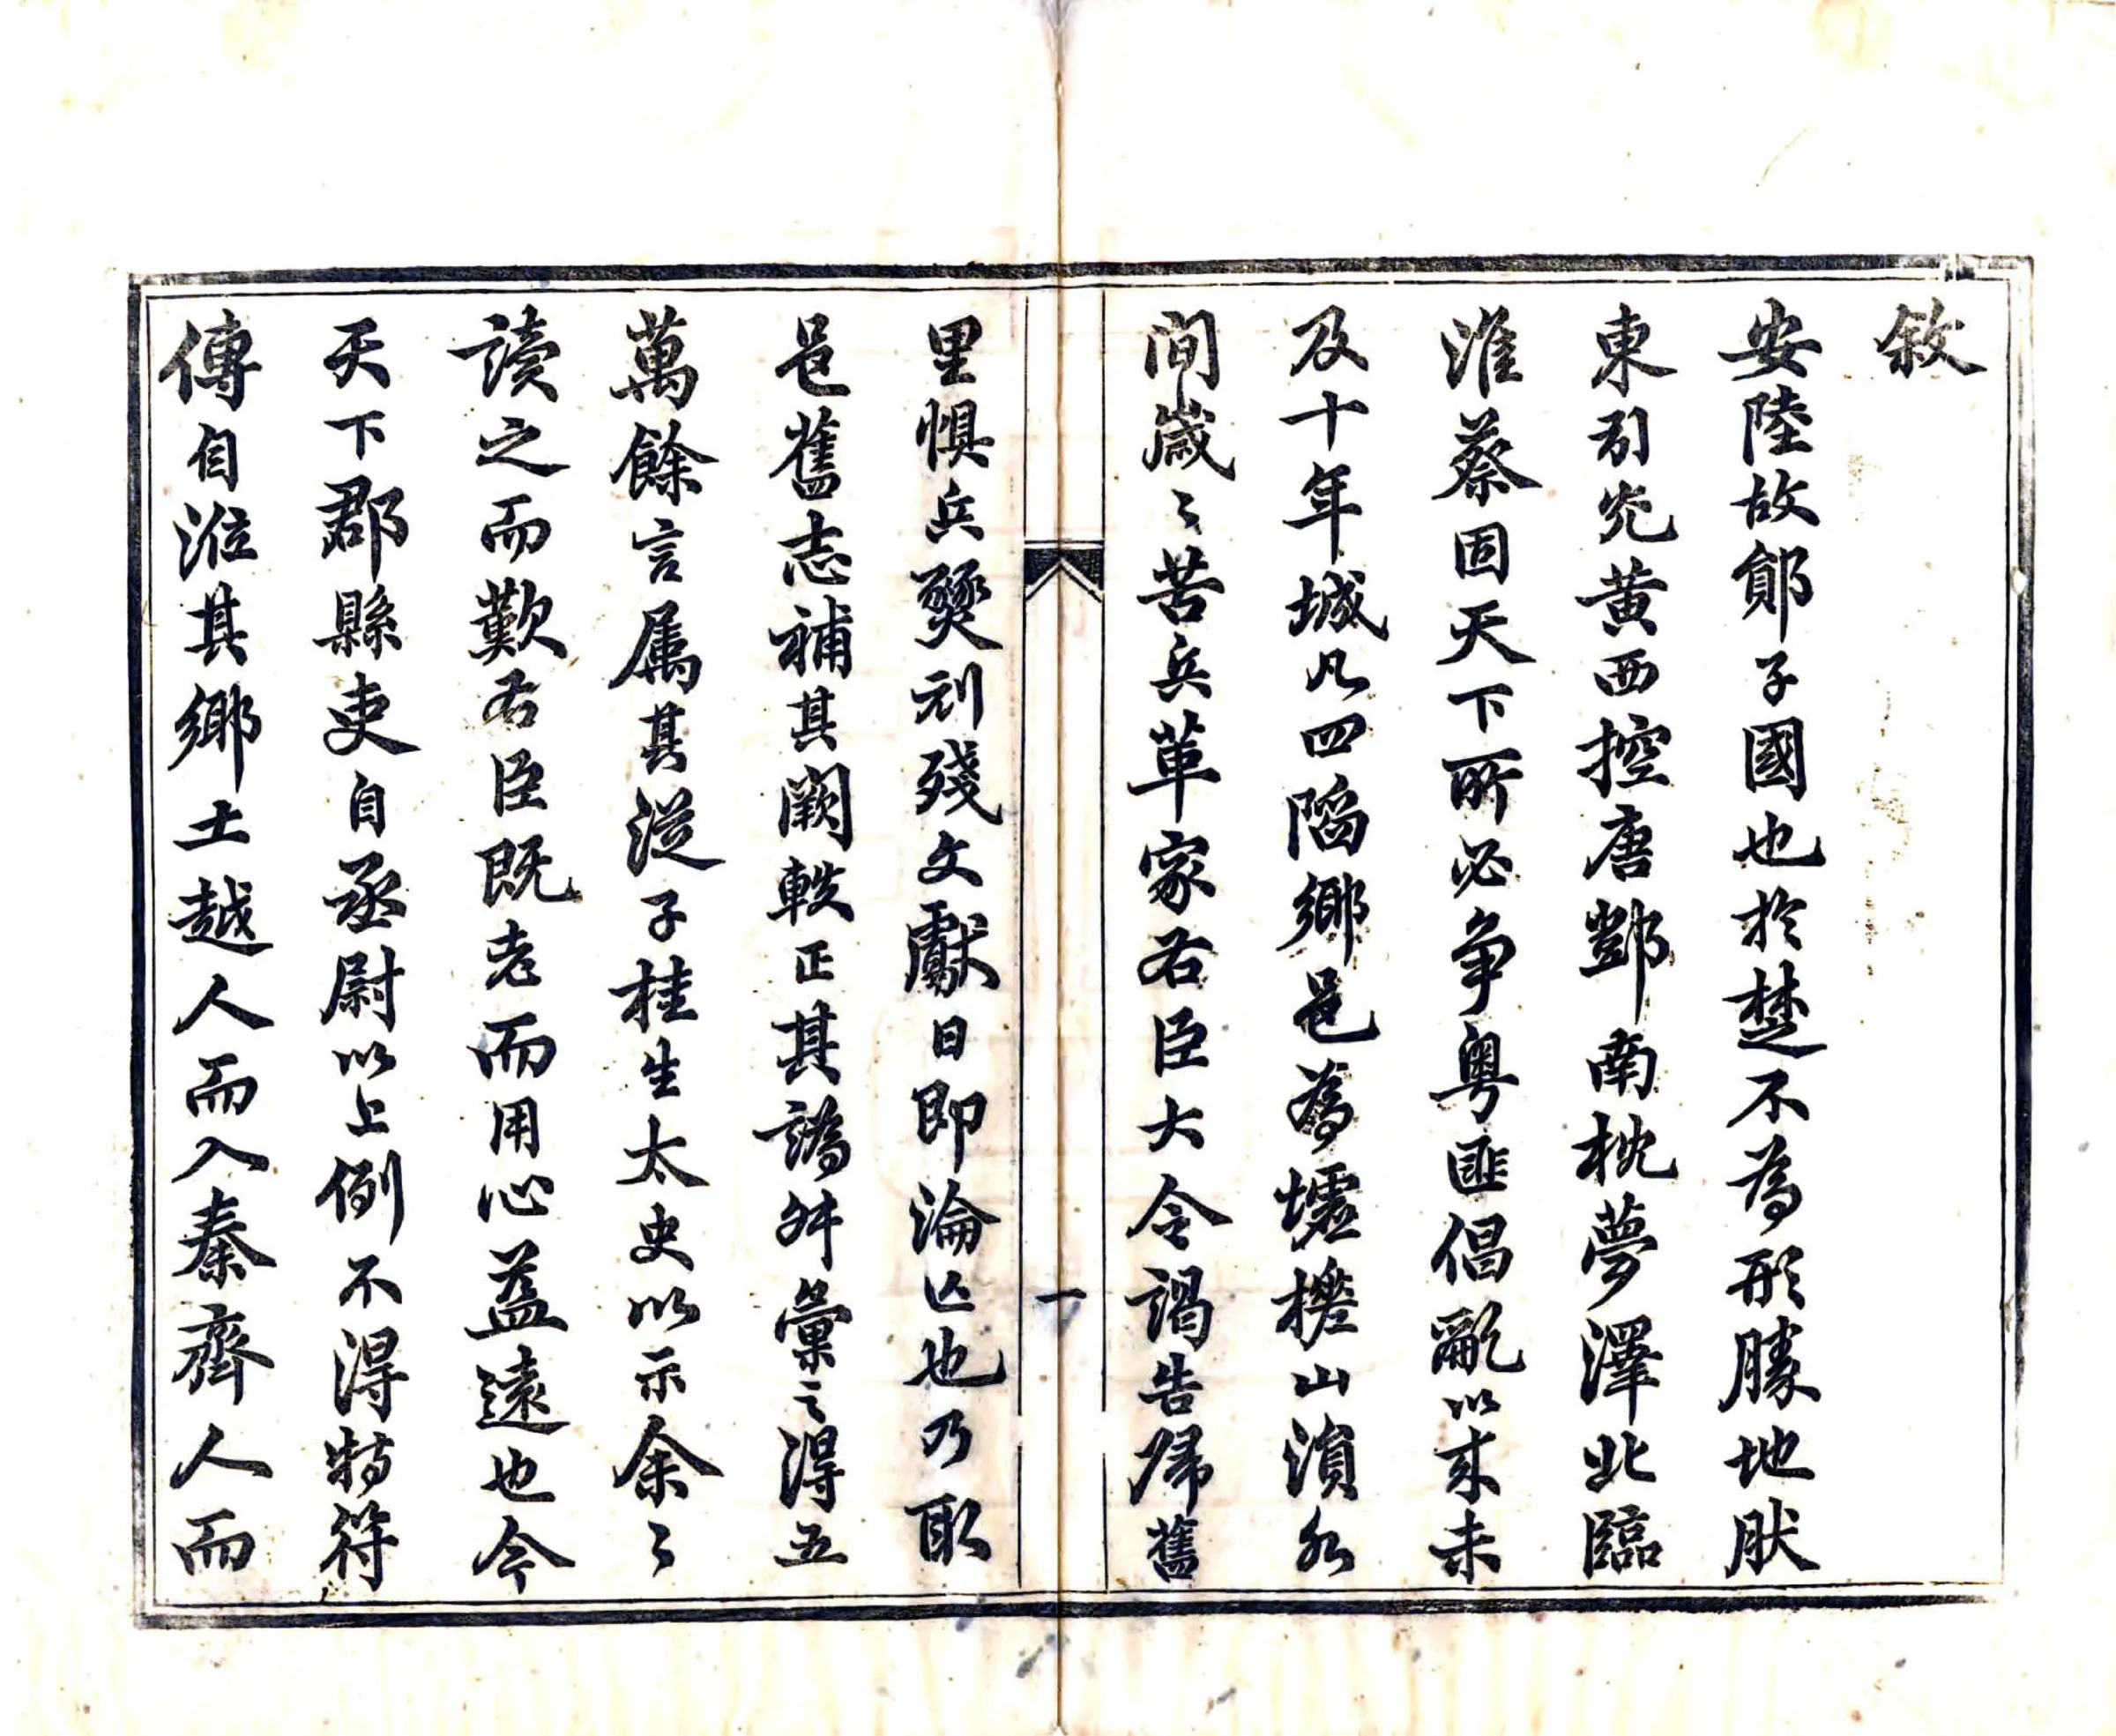 敘
安陸故鄖子國也於楚不為形勝地肰
東引光黄西控唐鄧南枕夢澤北臨
淮蔡固天下所必爭粵匪倡亂以來未
及十年城凡四陷鄉邑為墟槎山溳水
間歲〻苦兵革家右臣大令謁告歸舊
一
里懼兵燹刓殘文獻日即淪亾也乃取
邑舊志補其闕軼正其譌舛彙之得五
萬餘言屬其從子桂生太史以示余〻
讀之而歎右臣既老而用心益遠也今
天下郡縣吏自丞尉以上例不得特符
傳自涖其鄉土越人而入秦齊人而